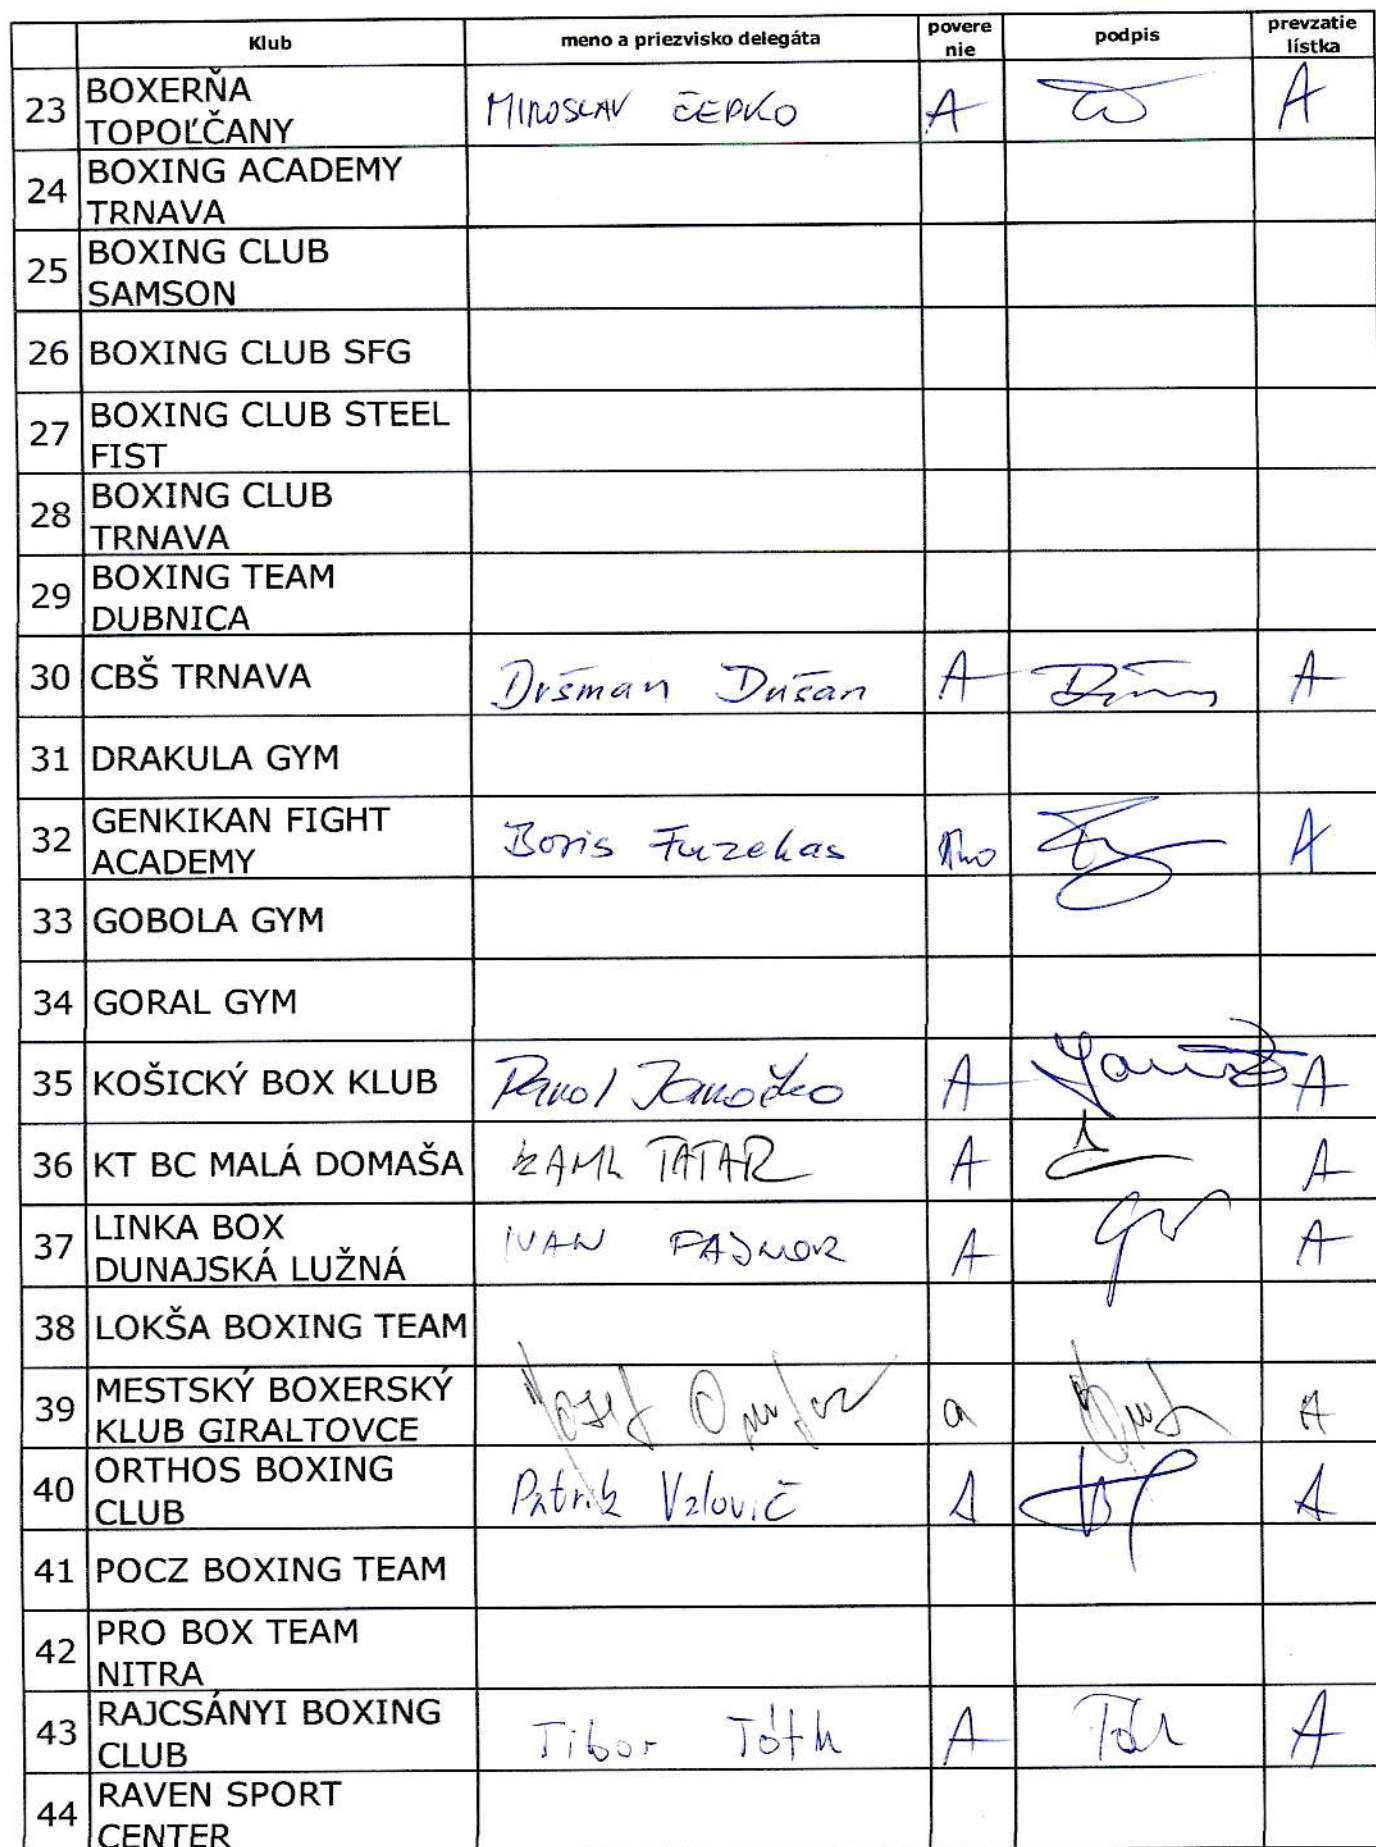 Klub meno a priezvisko delegáta povere nie podpis prevzatie lístka
23 BOXERŇA TOPOĽČANY MIROSLAV ČEPKO A A
24 BOXING ACADEMY TRNAVA
25 BOXING CLUB SAMSON
26 BOXING CLUB SFG
27 BOXING CLUB STEEL FIST
28 BOXING CLUB TRNAVA
29 BOXING TEAM DUBNICA
30 CBŠ TRNAVA Dršman Dušan A A
31 DRAKULA GYM
32 GENKIKAN FIGHT ACADEMY Boris Fuzekas A
33 GOBOLA GYM
34 GORAL GYM
35 KOŠICKÝ BOX KLUB Pavol Janočko A A
36 KT BC MALÁ DOMAŠA KAMIL TATAR A A
37 LINKA BOX DUNAJSKÁ LUŽNÁ IVAN PAJMOR A A
38 LOKŠA BOXING TEAM
39 MESTSKÝ BOXERSKÝ KLUB GIRALTOVCE Jozef a A
40 ORTHOS BOXING CLUB Patrik Valovič A A
41 POCZ BOXING TEAM
42 PRO BOX TEAM NITRA
43 RAJCSÁNYI BOXING CLUB Tibor Tóth A A
44 RAVEN SPORT CENTER